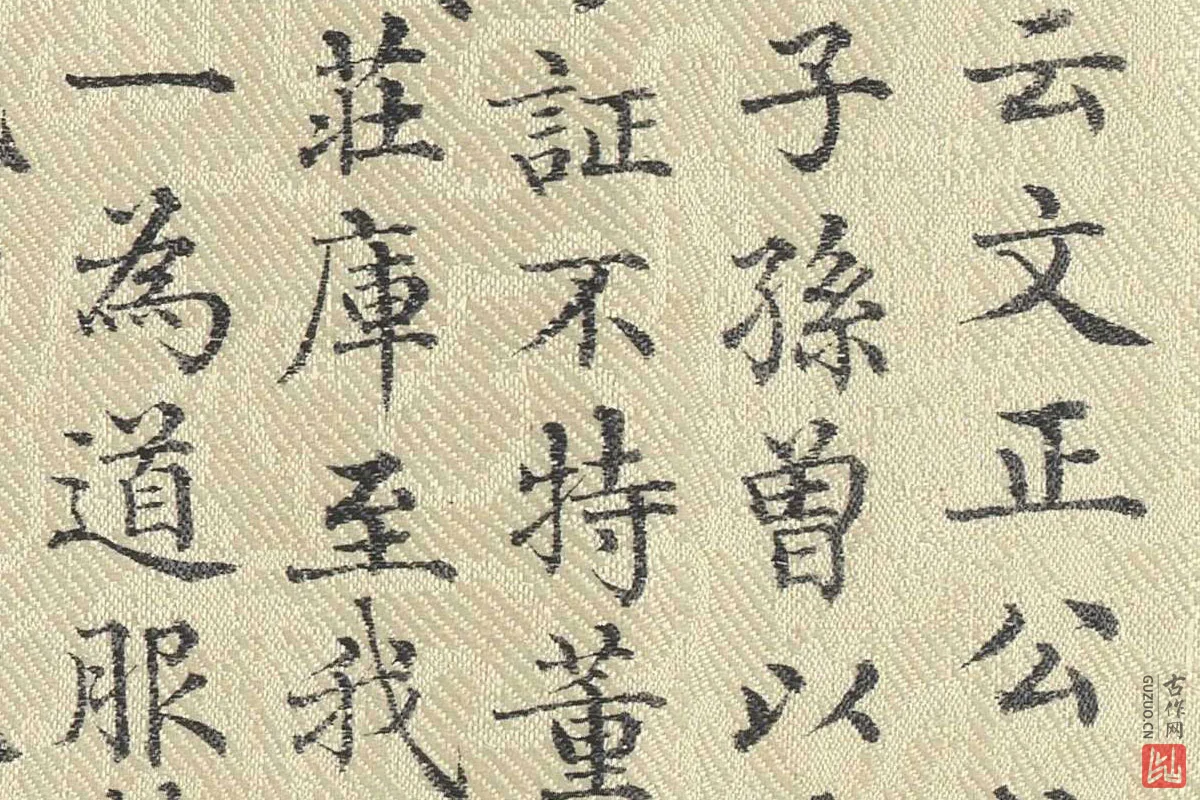 云文正公
子孫曾以
証不特董
莊庫至我
一為道服
古作网
GUZUO.CN